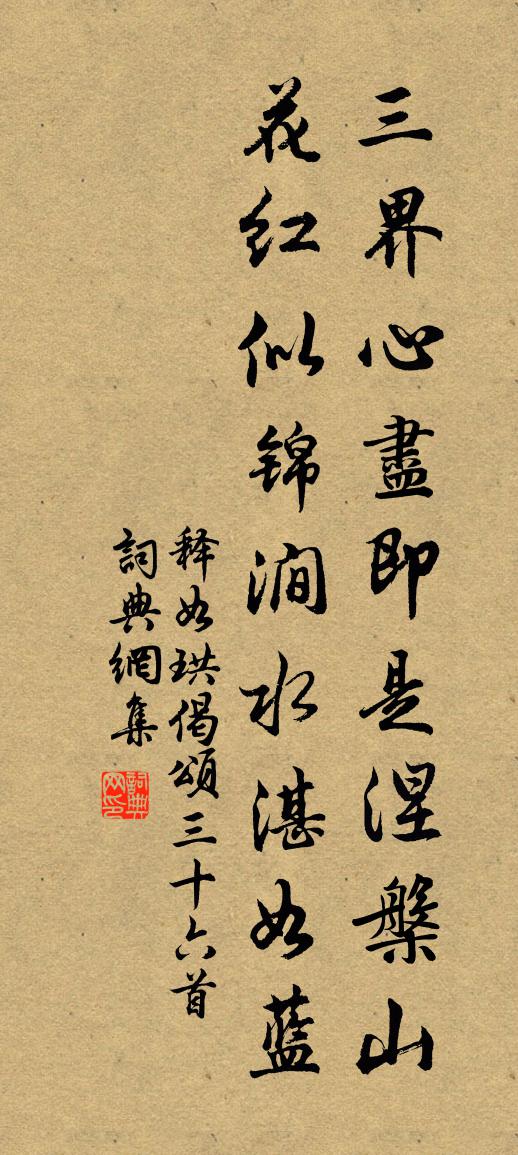 三界心盡即是涅槃山
花紅似錦澗水湛如藍
释如珙偈頌三十六首
詞典網集
詞典网印